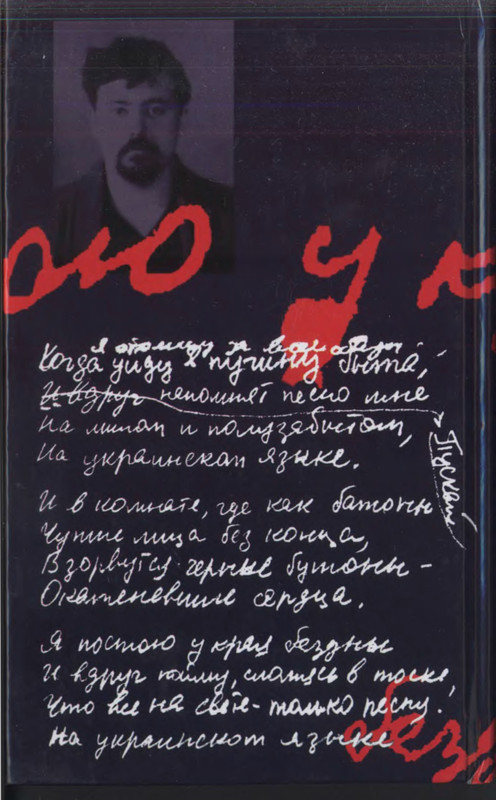 ою у к
Я отомщу за все обиды
Когда уйду в пучину быта,
И вдруг напомнят песню мне
Пускай
На милом и полузабытом,
На украинском языке.
И в комнате, где как батоны
Чужие лица без конца,
Взорвутся черные бутоны –
Окаменевшие сердца.
Я постою у края бездны
И вдруг пойму, сломясь в тоске,
Что все на свете – только песня.
На украинском языке
без